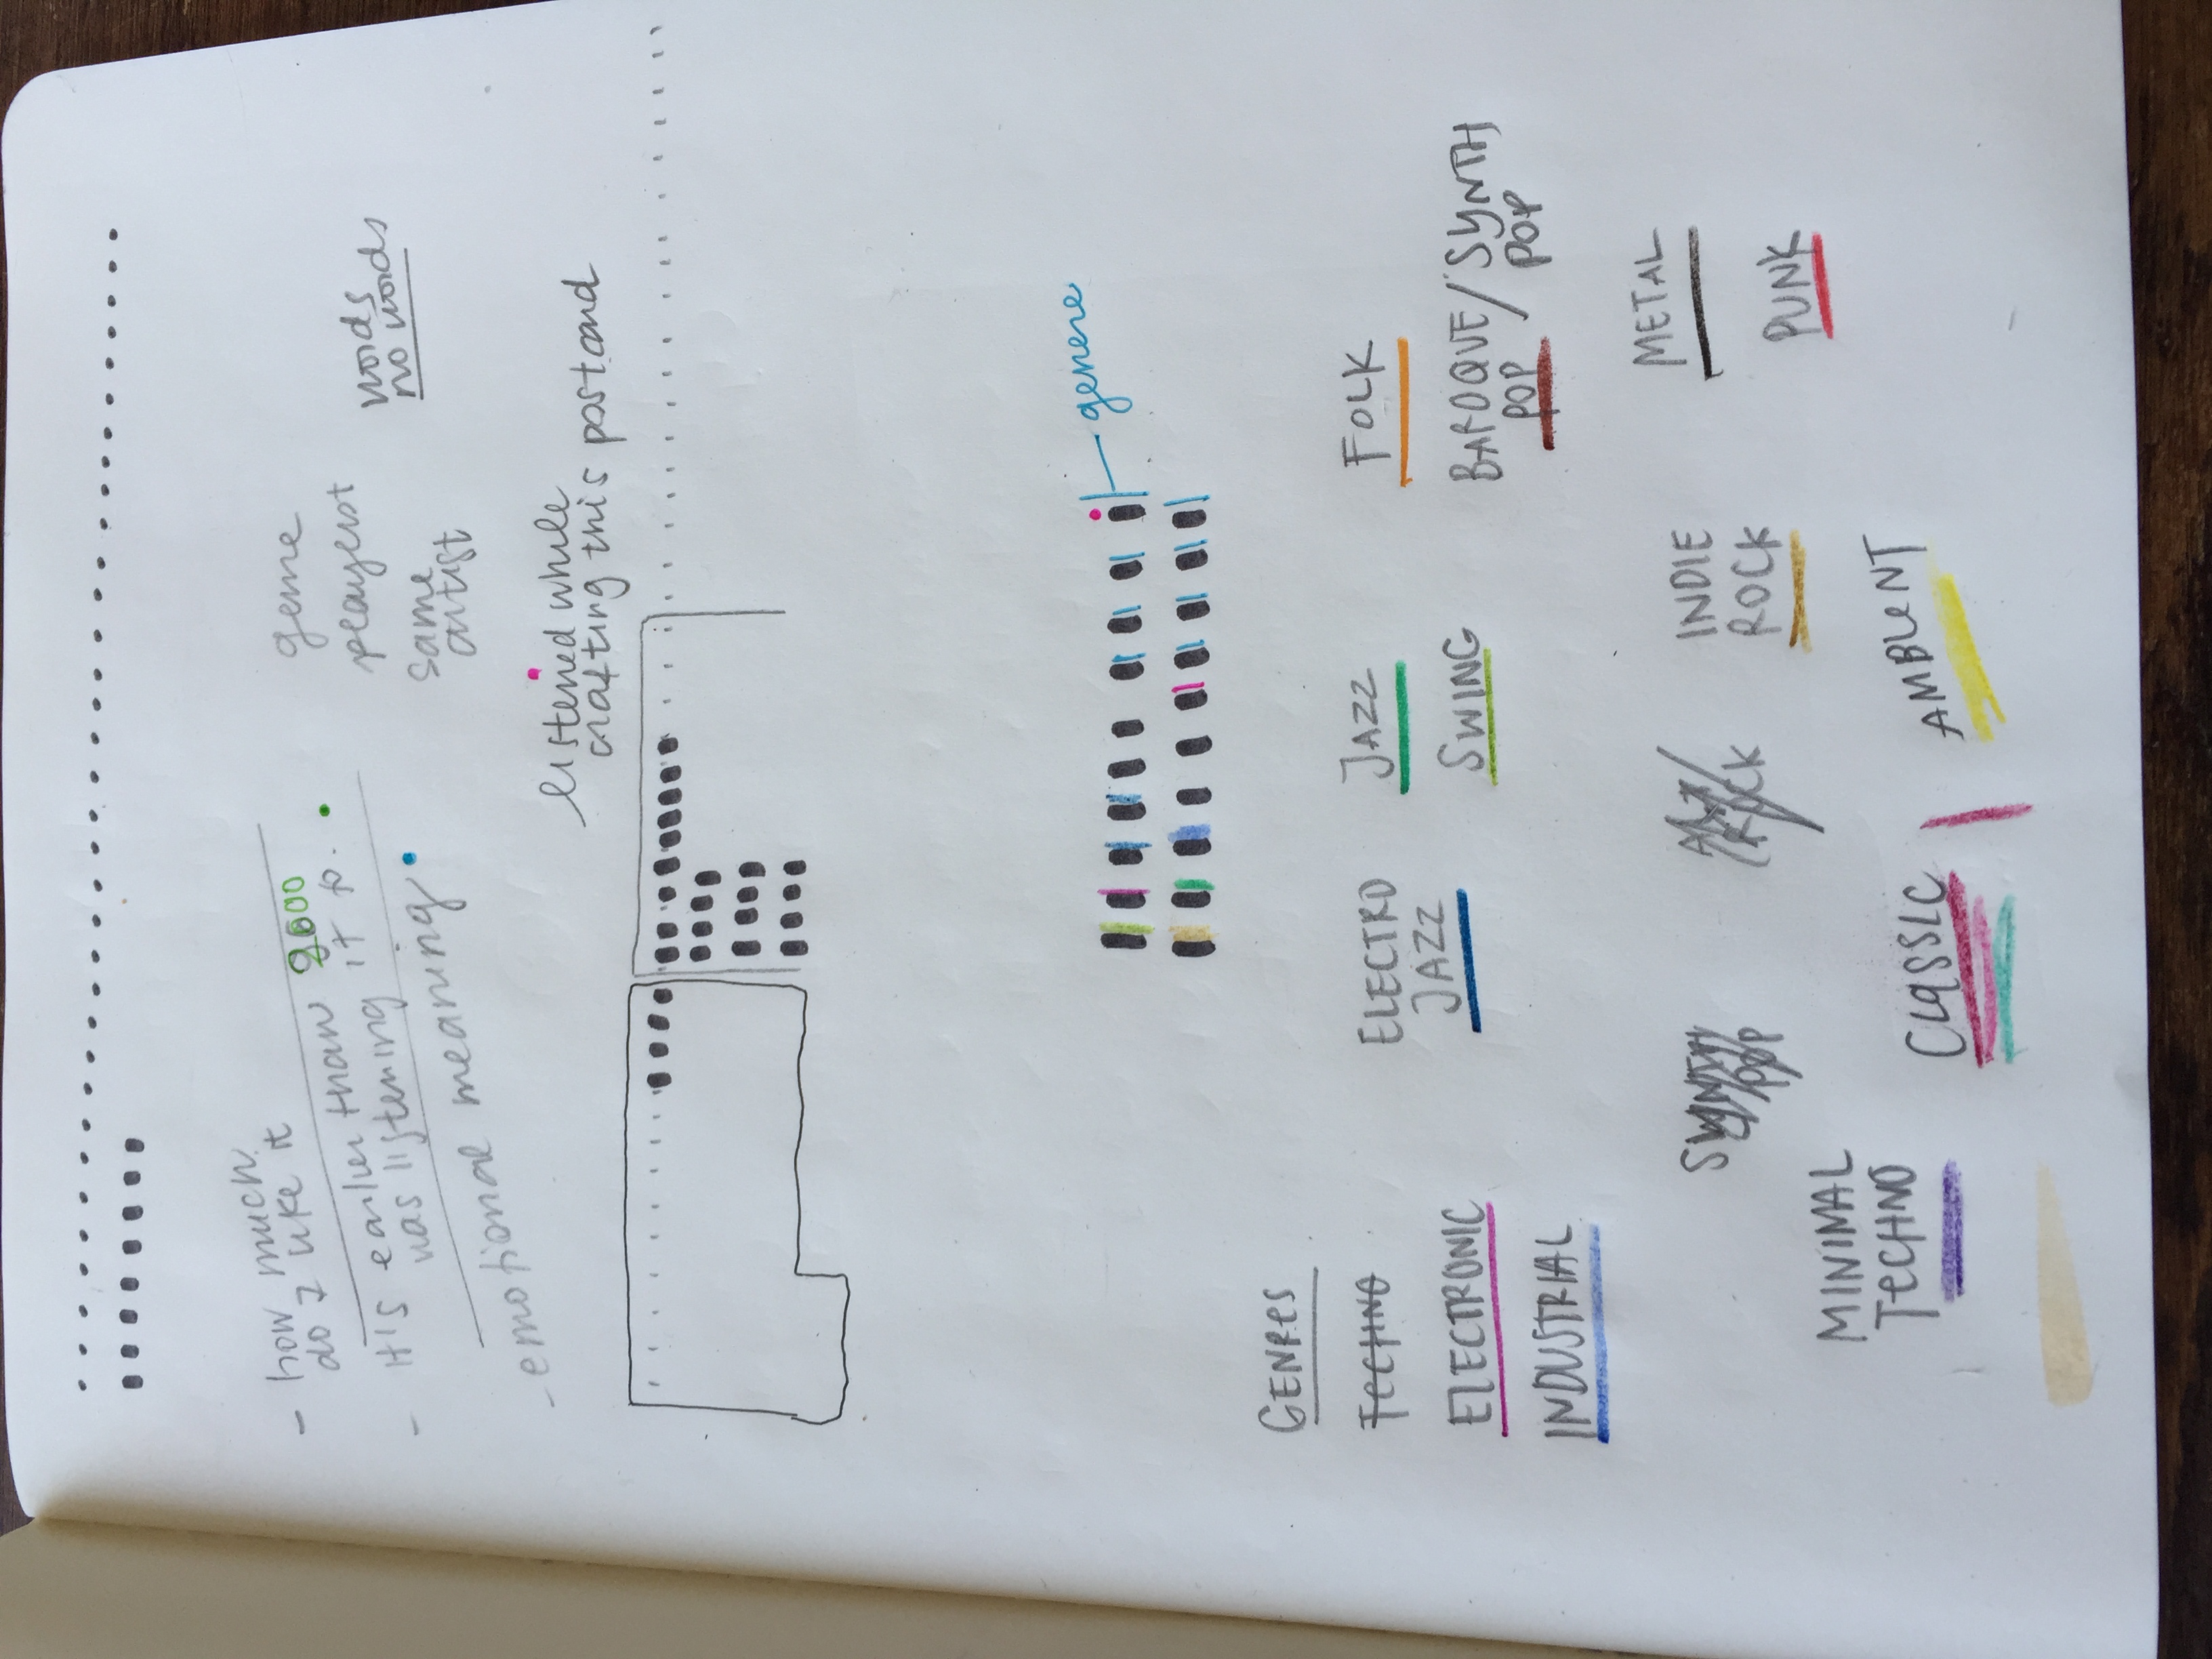 - how much
do I like it
- it's earlier than 2000
was listening it to.
- emotional meaning
genre
same
artist
words
no words
listened while
crafting this postcard
genre
GENRES
TECHNO
ELECTRONIC
INDUSTRIAL
ELECTRO
JAZZ
JAZZ
SWING
FOLK
BAROQUE / SYNTH
POP POP
SYNTH
POP
ROCK
INDIE
ROCK
METAL
PUNK
MINIMAL
TECHNO
CLASSIC
AMBIENT